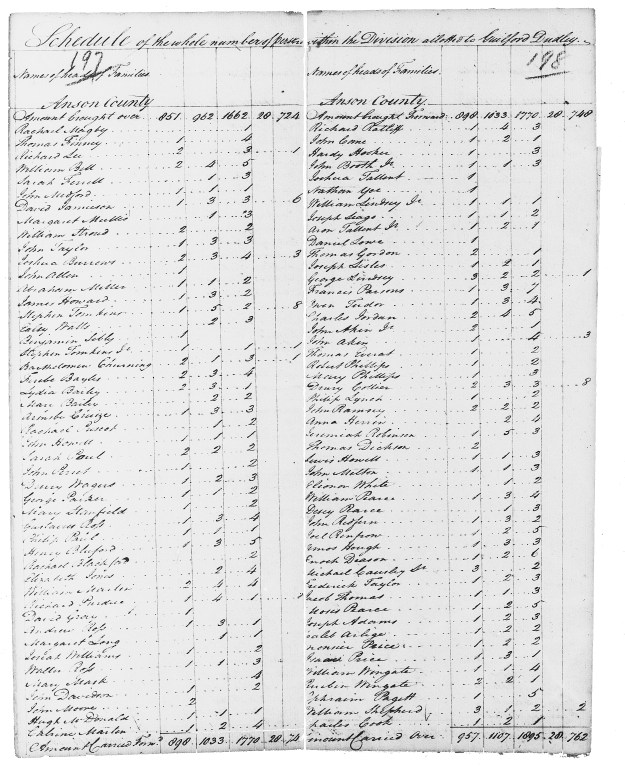 Schedule of the whole number of persons within the Division allotted to Guilford Dudley
197 198
Names of heads of Families.
Anson County
Amount brought over 851 962 1662 28 724
Rachael Magby 1
Thomas Finney 1 4
Richard Lee 2 3 1
William Bell 2 4 5
Sarah 1 3
John Medford 1 1 1
David Jameson 1 3 3 6
Margaret Mullis 1 3
William Stroud 2 2
John Taylor 1 3 3
Joshua Burrows 2 3 4 3
John Alden 1
Abraham Miller 1 1 2
James Howard 1 3 2
Stephen Tomkins 1 5 2 8
Walls 2 3
Benjamin 1
Stephen Tomkins Jr 1 1 1
Bartholomew 2 1 3 1
Bayles 2 3 4
Lydia Bailey 2 3 1
Bailey 2 2
1 3 3
Rachael 1 2
John Howell 1 1
Sarah 2 2 2
John 1 2
Wagers 1 2 3
George Parker 1 2
Mary Stanfield 1 2
Gustavus Ross 1 3 4
Philip 1 1 4
Henry Bluford 1 3 5
Rachael 2
Elizabeth Jones 2 4
William Martin 2 4 4
1 4 1
David Gray 1
Andrew Ross 1 3 1
Margaret Long 1 1
Josiah Williams 1 2
Walter Ross 1 1 3
Mary Mask 4
John Davidson 1 2
John Moore 2
Hugh McDonald 1 1 1
Martin 1 2 4
Amount Carried Forwd 898 1033 1770 28 74
Names of heads of Families.
Anson County.
Amount brought Forward 898 1033 1770 28 748
Richard Ratliff 1 4 3
John Cane 1 2 1
Hardy Hooker 3
John Booth Jr 1 1 3
Joshua Tallent 1
Nathan 1
William Lindsey Jr 1 1 1
Joseph 1 1 2
Aron Tallent Jr 1 2 1
Daniel Lowe 1
Thomas Gordon 2 1
Joseph Lisles 1 2 1
George Lindsey 3 2 2 1
Francis Parsons 1 3 7
Owen Tudor 1 3 4
Charles Jordan 2 4 5
John Aken Jr 2 1
John Aken 1 4 3
Thomas Everat 1 2
Robert Phillips 1 2
Mary Phillips 1 3
Henry Collier 2 3 3 8
Philip Lynch 1 2
John Ramsey 2 2 2
Anna 2 4
Jeremiah Robinson 1 5 3
Thomas Dickson 2
Lewis Howell 1 1 3
John Melton 1 1 3
Elionor White 1 2
William Pearce 1 3 4
Pearce 1 3
John Redfern 1 3 2
Joel Renfrow 1 2 5
Amos Hough 1 3 3
Enoch Deason 1 2 6
Michael Causley Sr 3 2
Frederick Taylor 1 2 3
Jacob Thomas 1 1 3
Moses Pearce 1 2 5
Joseph Adams 2 2
Caleb 1 2 1
Price 1 2 2
Isaac Price 1 3 1
William Wingate 1 1 4
Wingate 2 2 1
Ephraim Pagett 1 5
William Shepherd 3 1 2 2
Charles Cook 1 2 1
Amount Carried Over 957 1107 1895 28 762